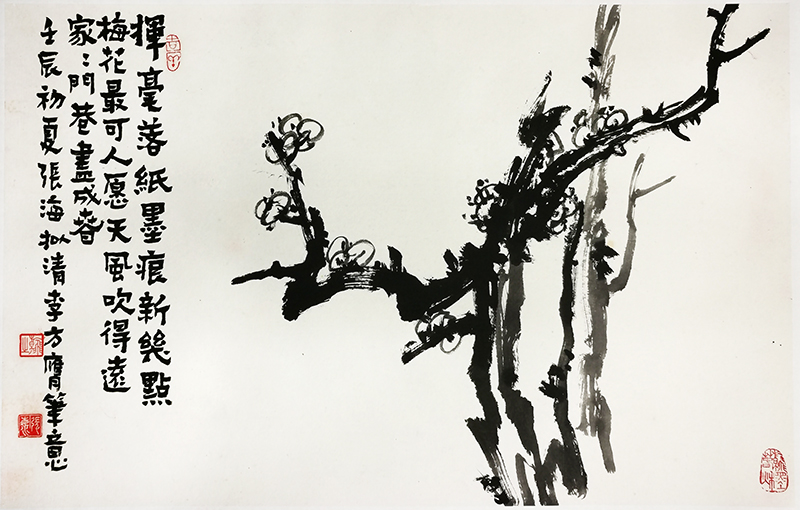 揮毫落紙墨痕新幾點
梅花最可人愿天風吹得遠
家〻門巷盡成春
壬辰初夏張海拟清李方膺筆意